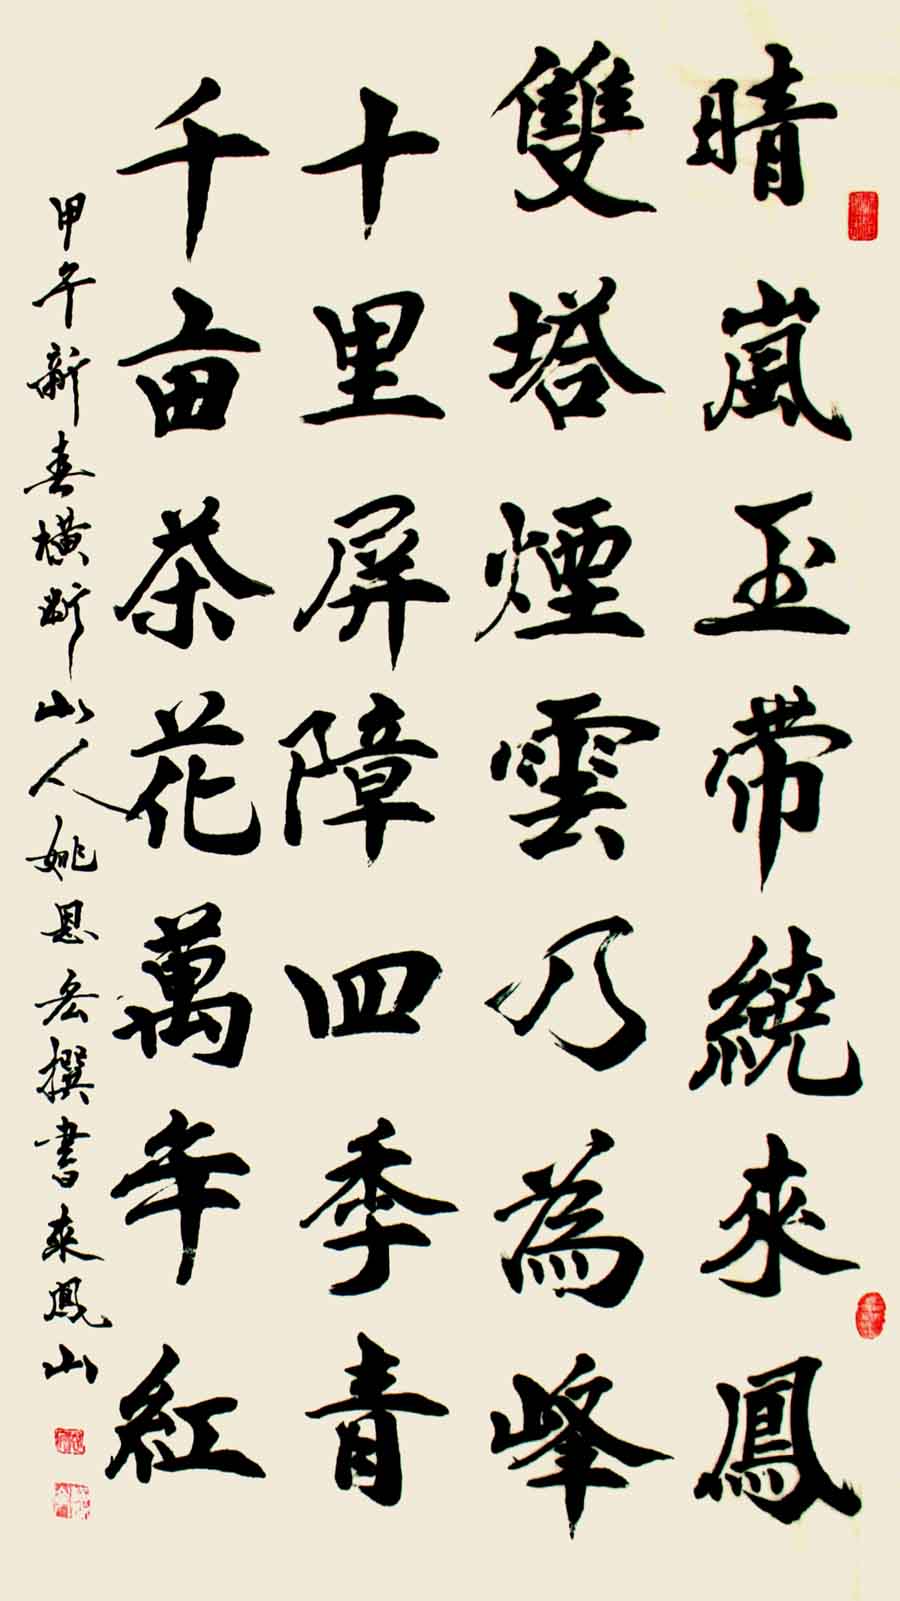 晴嵐玉帶繞來鳳
雙塔煙雲乃為峰
十里屏障四季青
千亩茶花萬年紅
甲午新春橫斷山人姚恩宏撰書來鳳山